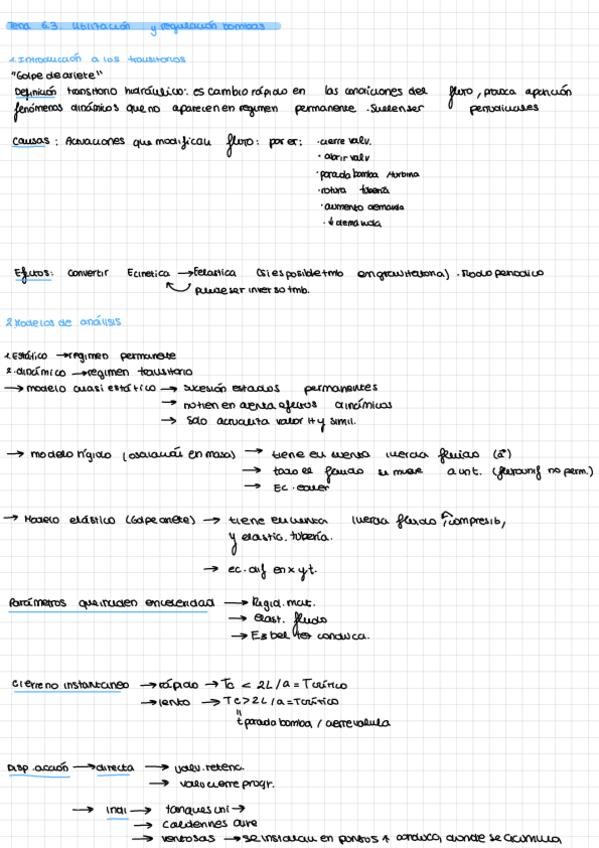 Tema 6.3. Utilización y regulación bombas
1. Introducción a los transitorios
"Golpe de ariete"
Definición transitorio hidráulico: es cambio rápido en las condiciones del flujo, provoca aparición
fenómenos dinámicos que no aparecen en regimen permanente. Suelen ser periodicases
causas: Actuaciones que modifican flujo: por ej:
· cierre valv.
· abrir valv
· parada bomba /turbina
· rotura tubería
· aumento demanda
· ↓ demanda
Efectos: convertir Ecinetica → Eelastica (si es posible tmb en gravitatoria). Modo periodico
puede ser inverso tmb.
2. Modelos de análisis
1. Estático → regimen permanete
2. dinámico → regimen transitorio
→ modelo cuasi estático → sucesión estados permanentes
→ no tien en cuenta efectos dinámicos
→ solo actualita valor H y simil.
→ modelo rígido (oscilación en masa) → tiene en cuenta inercia fluido (a²)
→ todo el fluido se mueve a unt. (flujo unif no perm.)
→ Ec. euler
→ Modelo elástico (Golpe ariete) → tiene en cuenta inercia fluido, compresib,
y elastic. tubería.
→ ec. dif en x y t.
Parámetros que inciden en celeridad → Rigid. mat.
→ elast. fluido
→ Esbeltez conducc.
Cierre no instantaneo → rápido → Tc < 2L/a = Tcrítico
→ lento → Tc > 2L/a = Tcrítico
"
t parada bomba / cierre valvula
Disp. acción → directa → valv. retenc.
→ valv cierre progr.
→ indi → tanques uni →
→ calderines aire
→ ventosas → se instalan en puntos ↑ conducc, donde se acumula